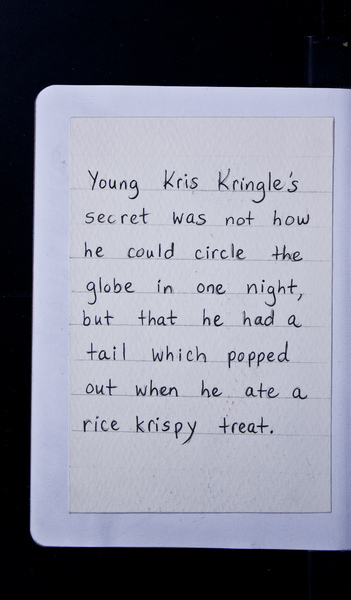 Young Kris Kringle's
secret was not how
he could circle the
globe in one night,
but that he had a
tail which popped
out when he ate a
rice krispy treat.